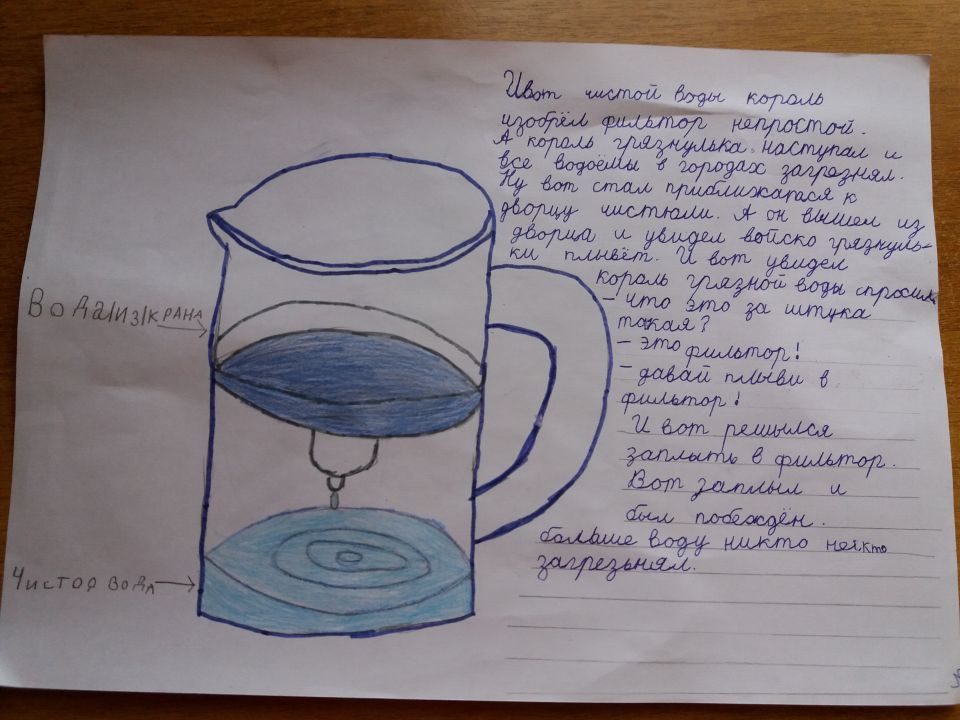 Ивот чистой воды король
изобрёл фильтор непростой.
А король грязнулька наступал и
все водоёмы в городах загрязнял.
Ну вот стал приближатася к
дворцу чистюли. А он вышел из
дворца и увидел войско грязнуль-
ки плывёт. И вот увидел
король грязной воды спросил
- что это за штука
такая?
- это фильтор!
- давай плыви в
фильтор!
И вот решылся
заплыть в фильтор.
Вот заплыл и
был побеждён.
больше воду никто
загрезьнял.
Вода из крана
Чистоя вода